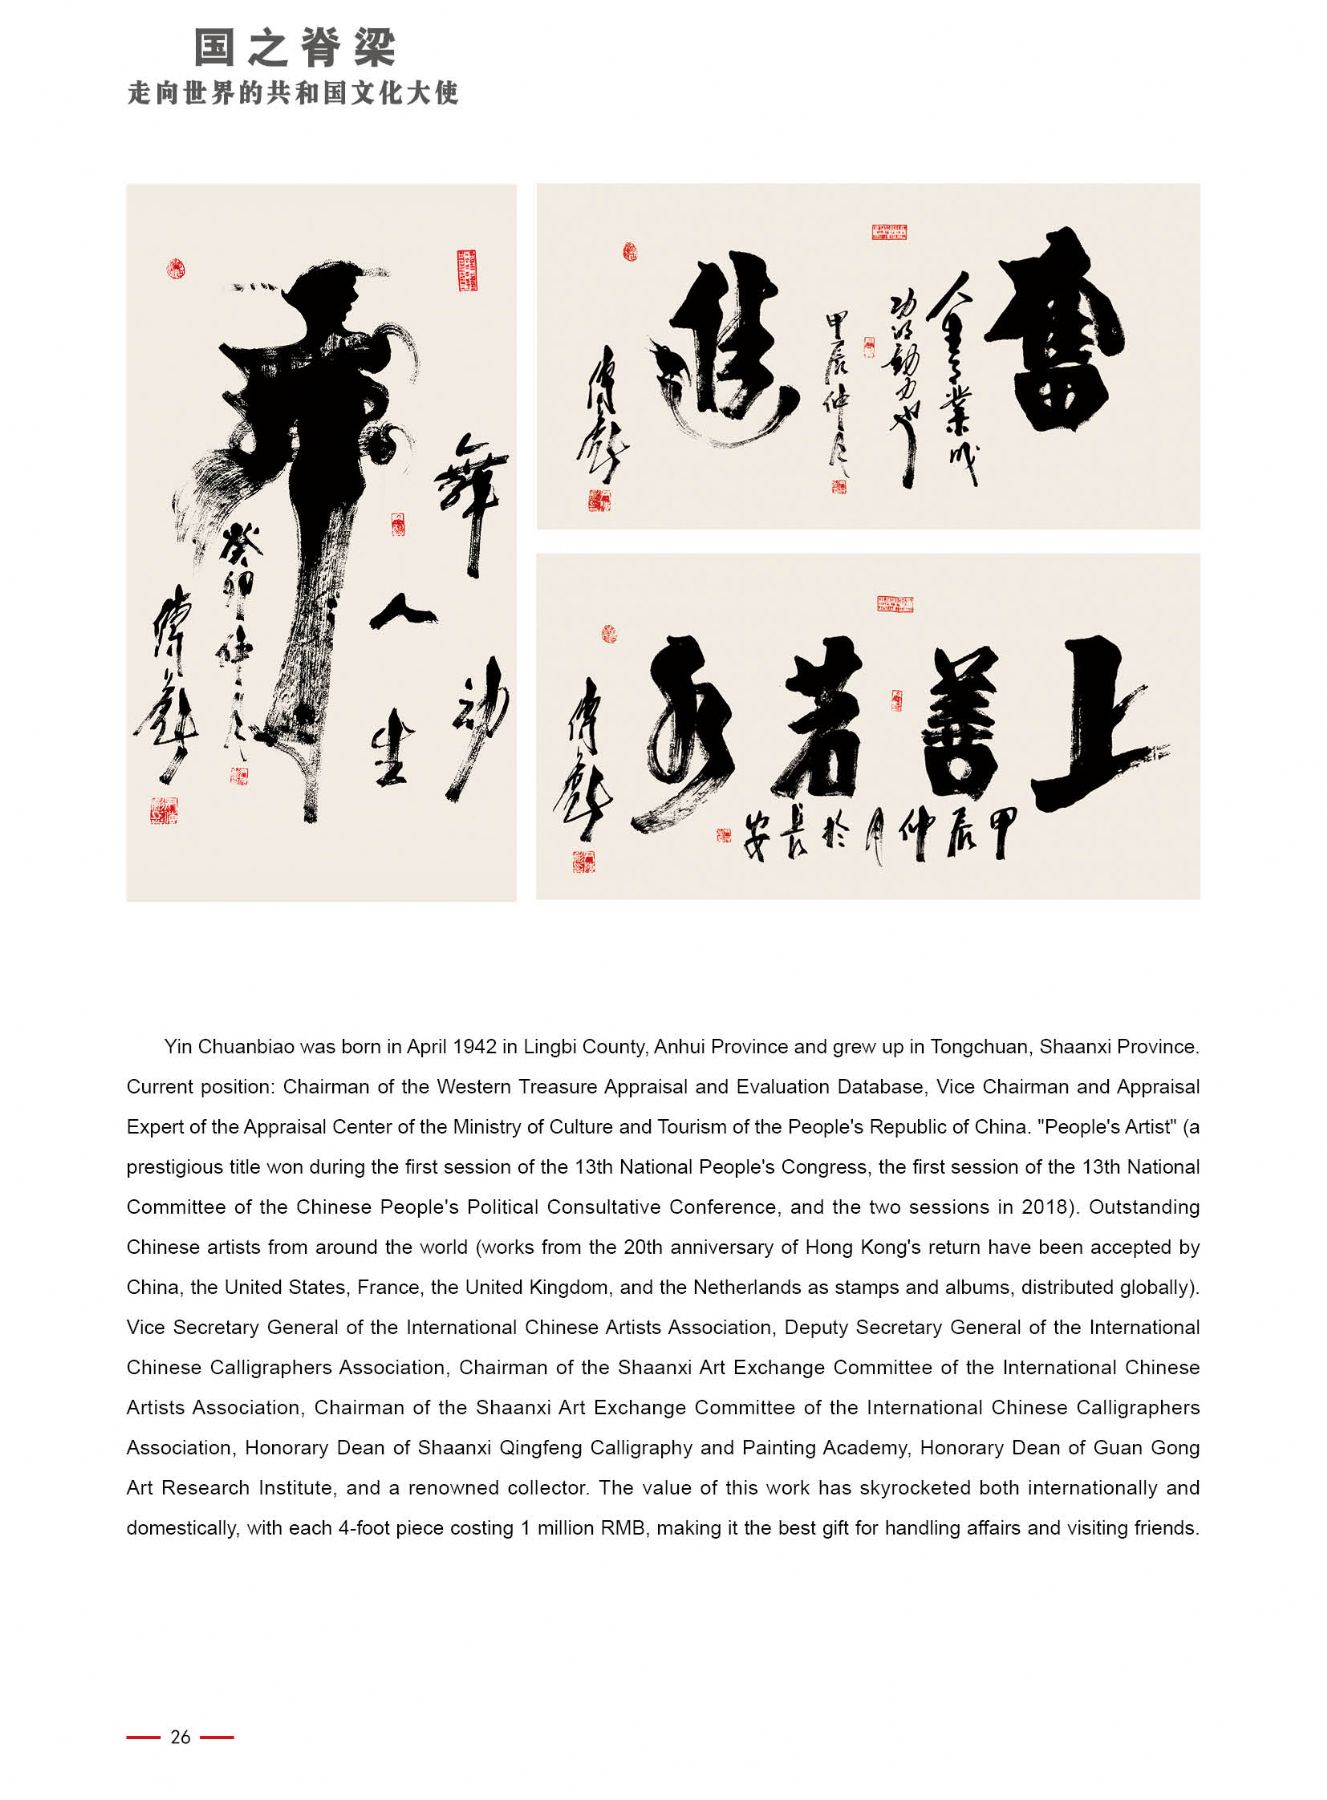 国之脊梁
走向世界的共和国文化大使
舞
人
生
舞动
癸卯仲月
传彪
奋进
人生事业成
功的动力也
甲辰仲月
传彪
上善若水
甲辰仲月於長安
传彪
Yin Chuanbiao was born in April 1942 in Lingbi County, Anhui Province and grew up in Tongchuan, Shaanxi Province.
Current position: Chairman of the Western Treasure Appraisal and Evaluation Database, Vice Chairman and Appraisal
Expert of the Appraisal Center of the Ministry of Culture and Tourism of the People's Republic of China. "People's Artist" (a
prestigious title won during the first session of the 13th National People's Congress, the first session of the 13th National
Committee of the Chinese People's Political Consultative Conference, and the two sessions in 2018). Outstanding
Chinese artists from around the world (works from the 20th anniversary of Hong Kong's return have been accepted by
China, the United States, France, the United Kingdom, and the Netherlands as stamps and albums, distributed globally).
Vice Secretary General of the International Chinese Artists Association, Deputy Secretary General of the International
Chinese Calligraphers Association, Chairman of the Shaanxi Art Exchange Committee of the International Chinese
Artists Association, Chairman of the Shaanxi Art Exchange Committee of the International Chinese Calligraphers
Association, Honorary Dean of Shaanxi Qingfeng Calligraphy and Painting Academy, Honorary Dean of Guan Gong
Art Research Institute, and a renowned collector. The value of this work has skyrocketed both internationally and
domestically, with each 4-foot piece costing 1 million RMB, making it the best gift for handling affairs and visiting friends.
26